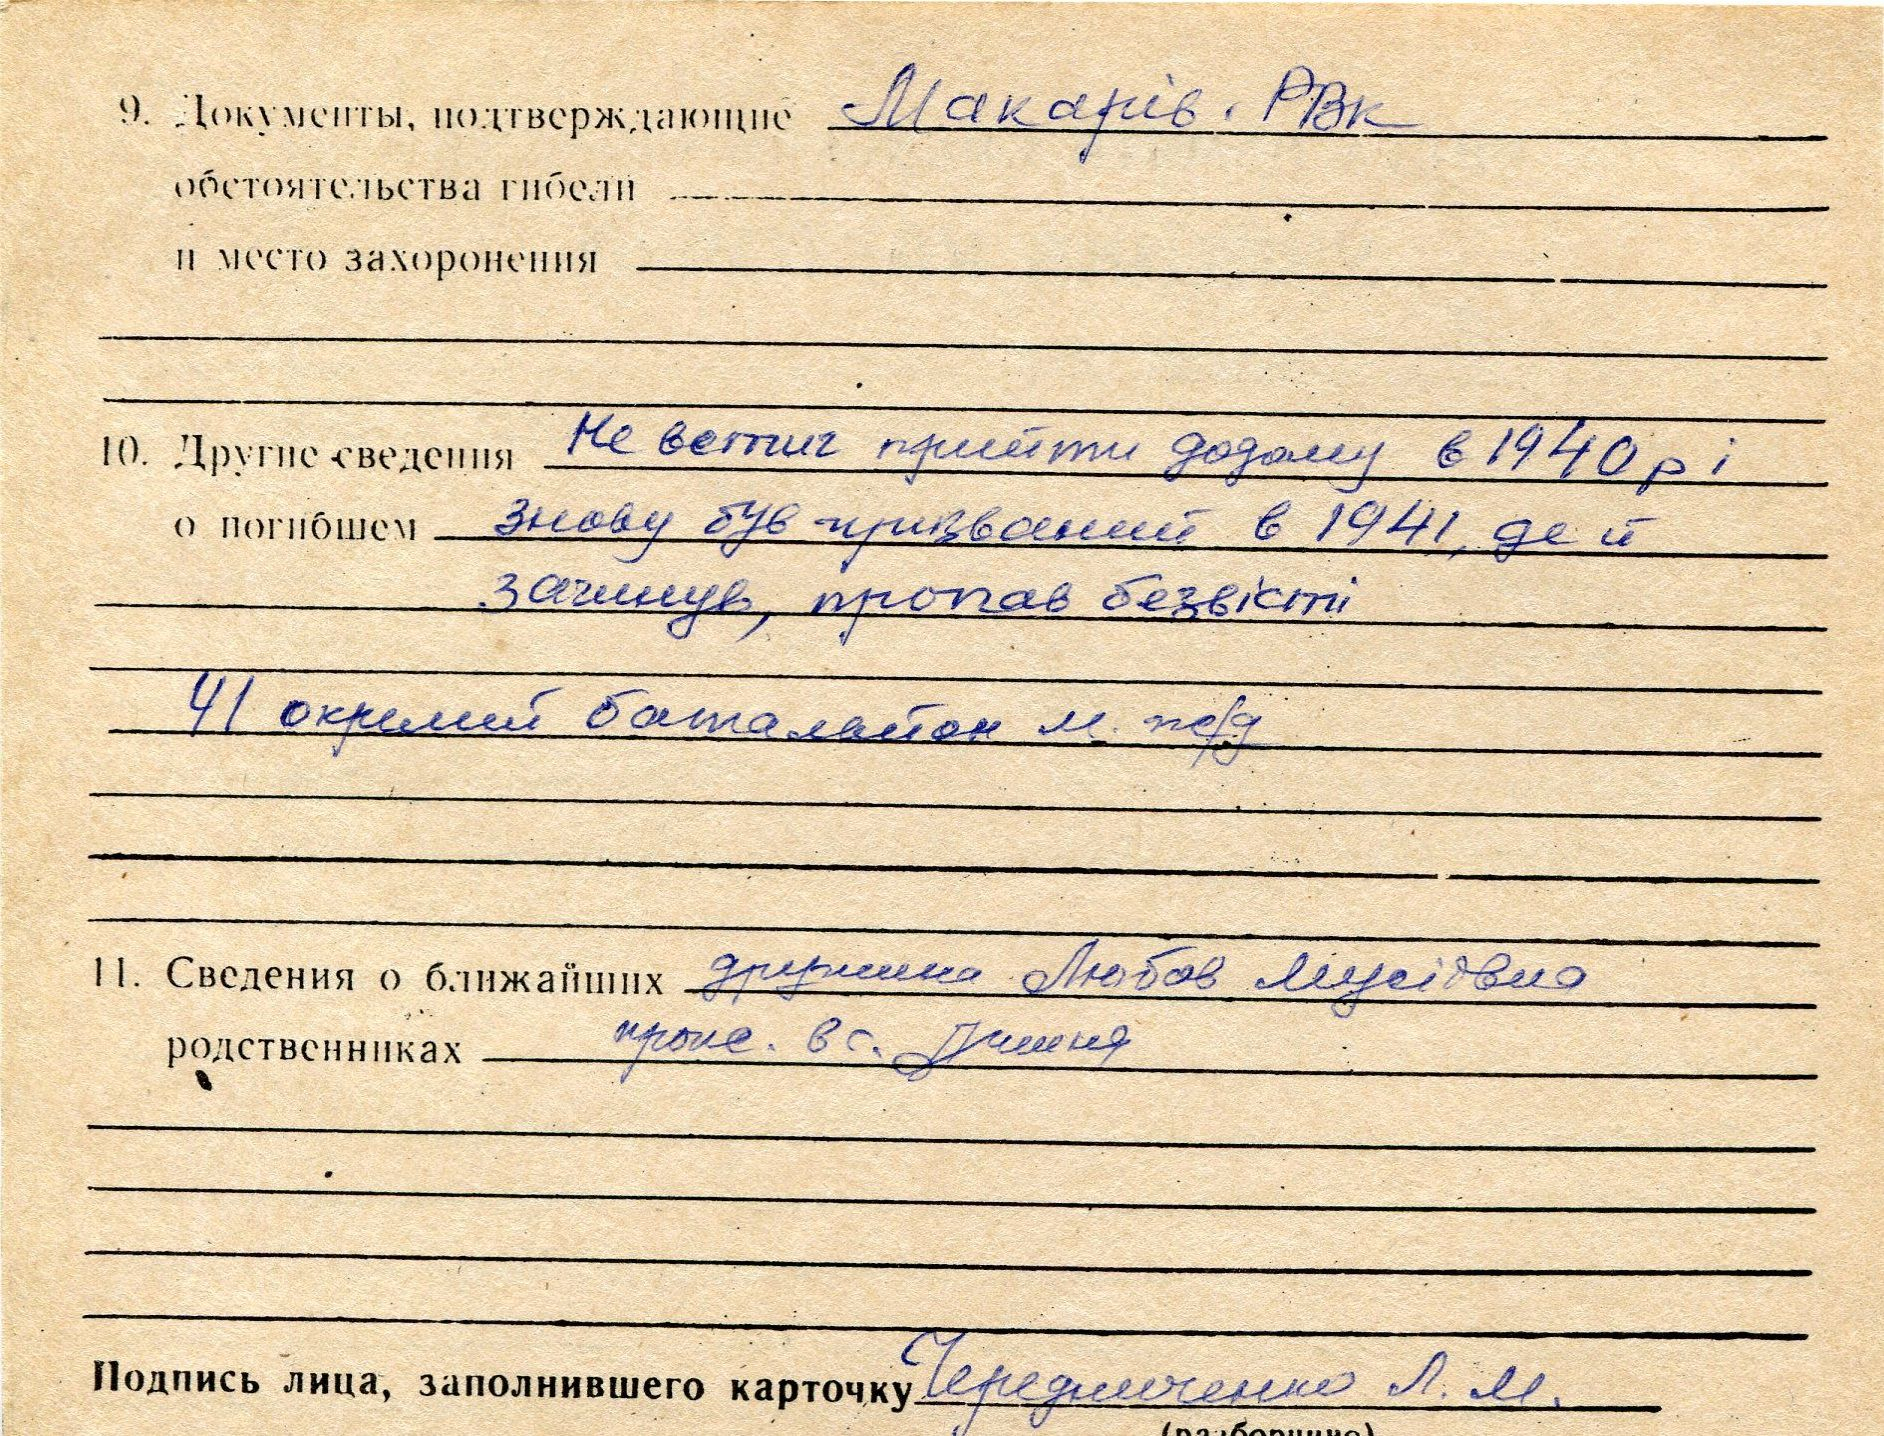 9. Документы, подтверждающие Макарів. РВк
обстоятельства гибели
и место захоронения
10. Другие сведения Не встиг прийти додому в 1940 р і
о погибшем знову був призваний в 1941, де й
загинув, пропав безвісти
41 окремий батальйон
11. Сведения о ближайших дружина Любов Мусіївна
родственниках прож. в с.
Подпись лица, заполнившего карточку Чередниченко Л. М.
(разборчиво)